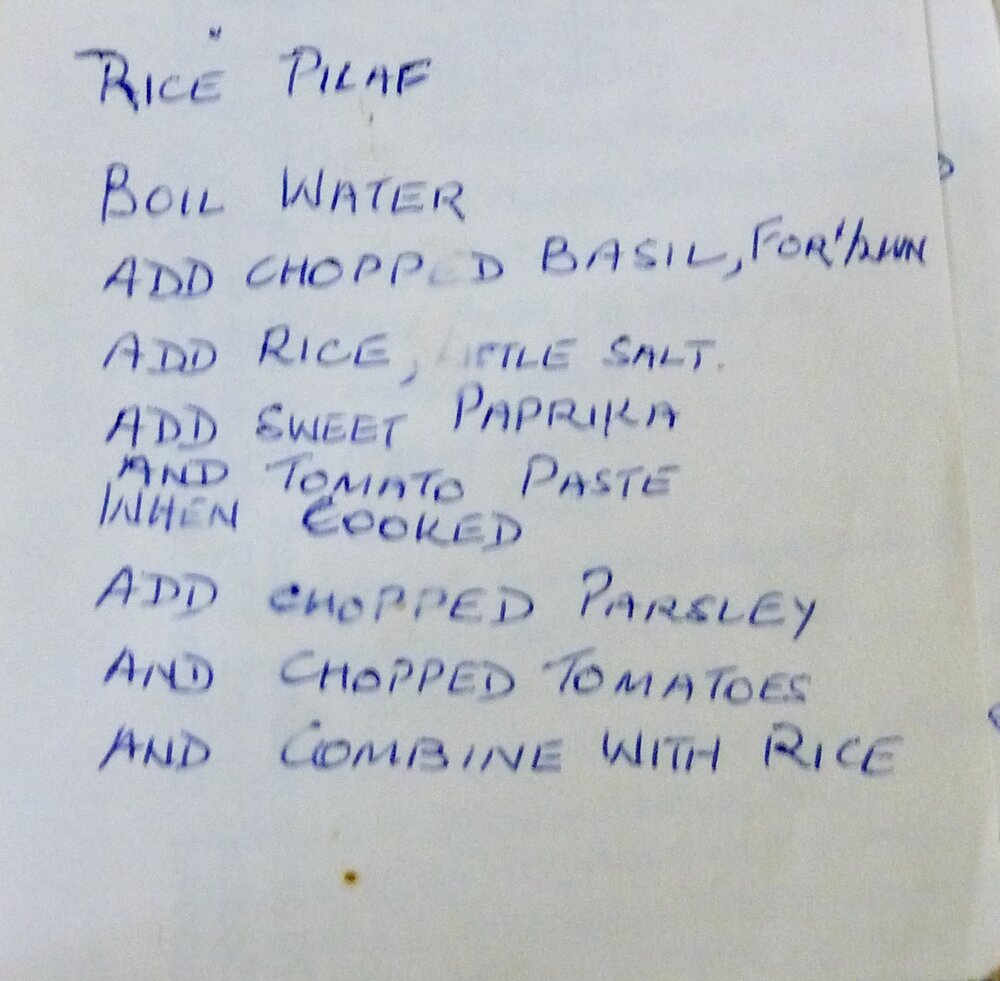 RICE PILAF
BOIL WATER
ADD CHOPPED BASIL, FOR 1/2
ADD RICE, LITTLE SALT.
ADD SWEET PAPRIKA
AND TOMATO PASTE
WHEN COOKED
ADD CHOPPED PARSLEY
AND CHOPPED TOMATOES
AND COMBINE WITH RICE